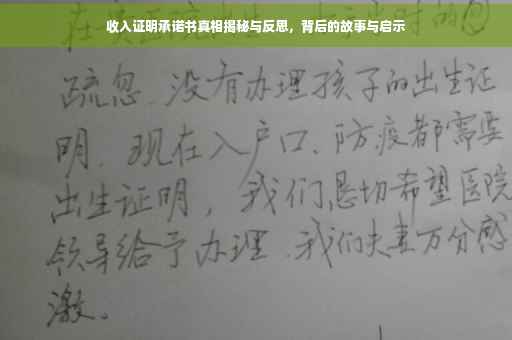 收入证明承诺书真相揭秘与反思，背后的故事与启示
疏忽、没有办理孩子的出生证
明、现在入户口、防疫都需要
出生证明，我们恳切希望医院
领导给予办理、我们夫妻万分感
激。